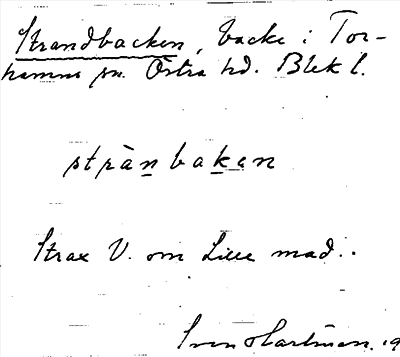 Strandbacken, backe i Tor-
hamns sn. Östra hd. Blek l.
strànbakan
Strax V. om Lille mad..
Sven Hartman. 19